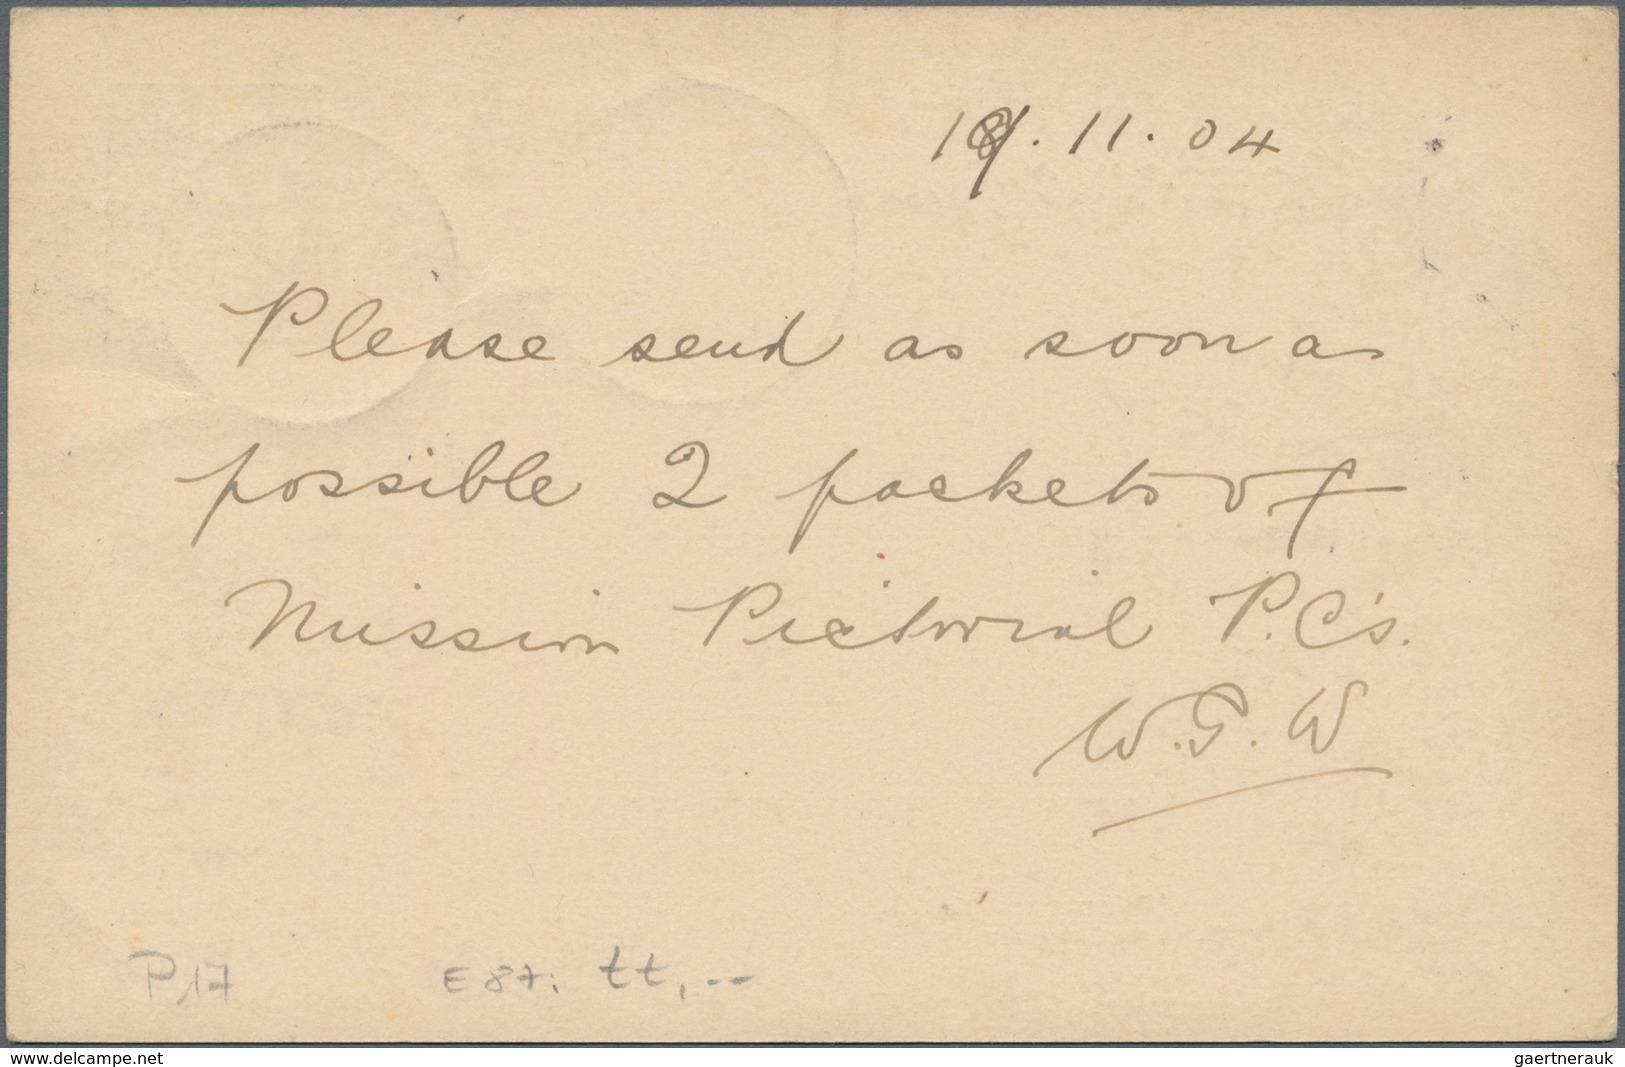 .11.04
Please send as soon as
possible 2 packets of
Mission Pictorial P.C's.
W.G.W
P17 E87: tt,--
www.delcampe.net
gaertnerauk